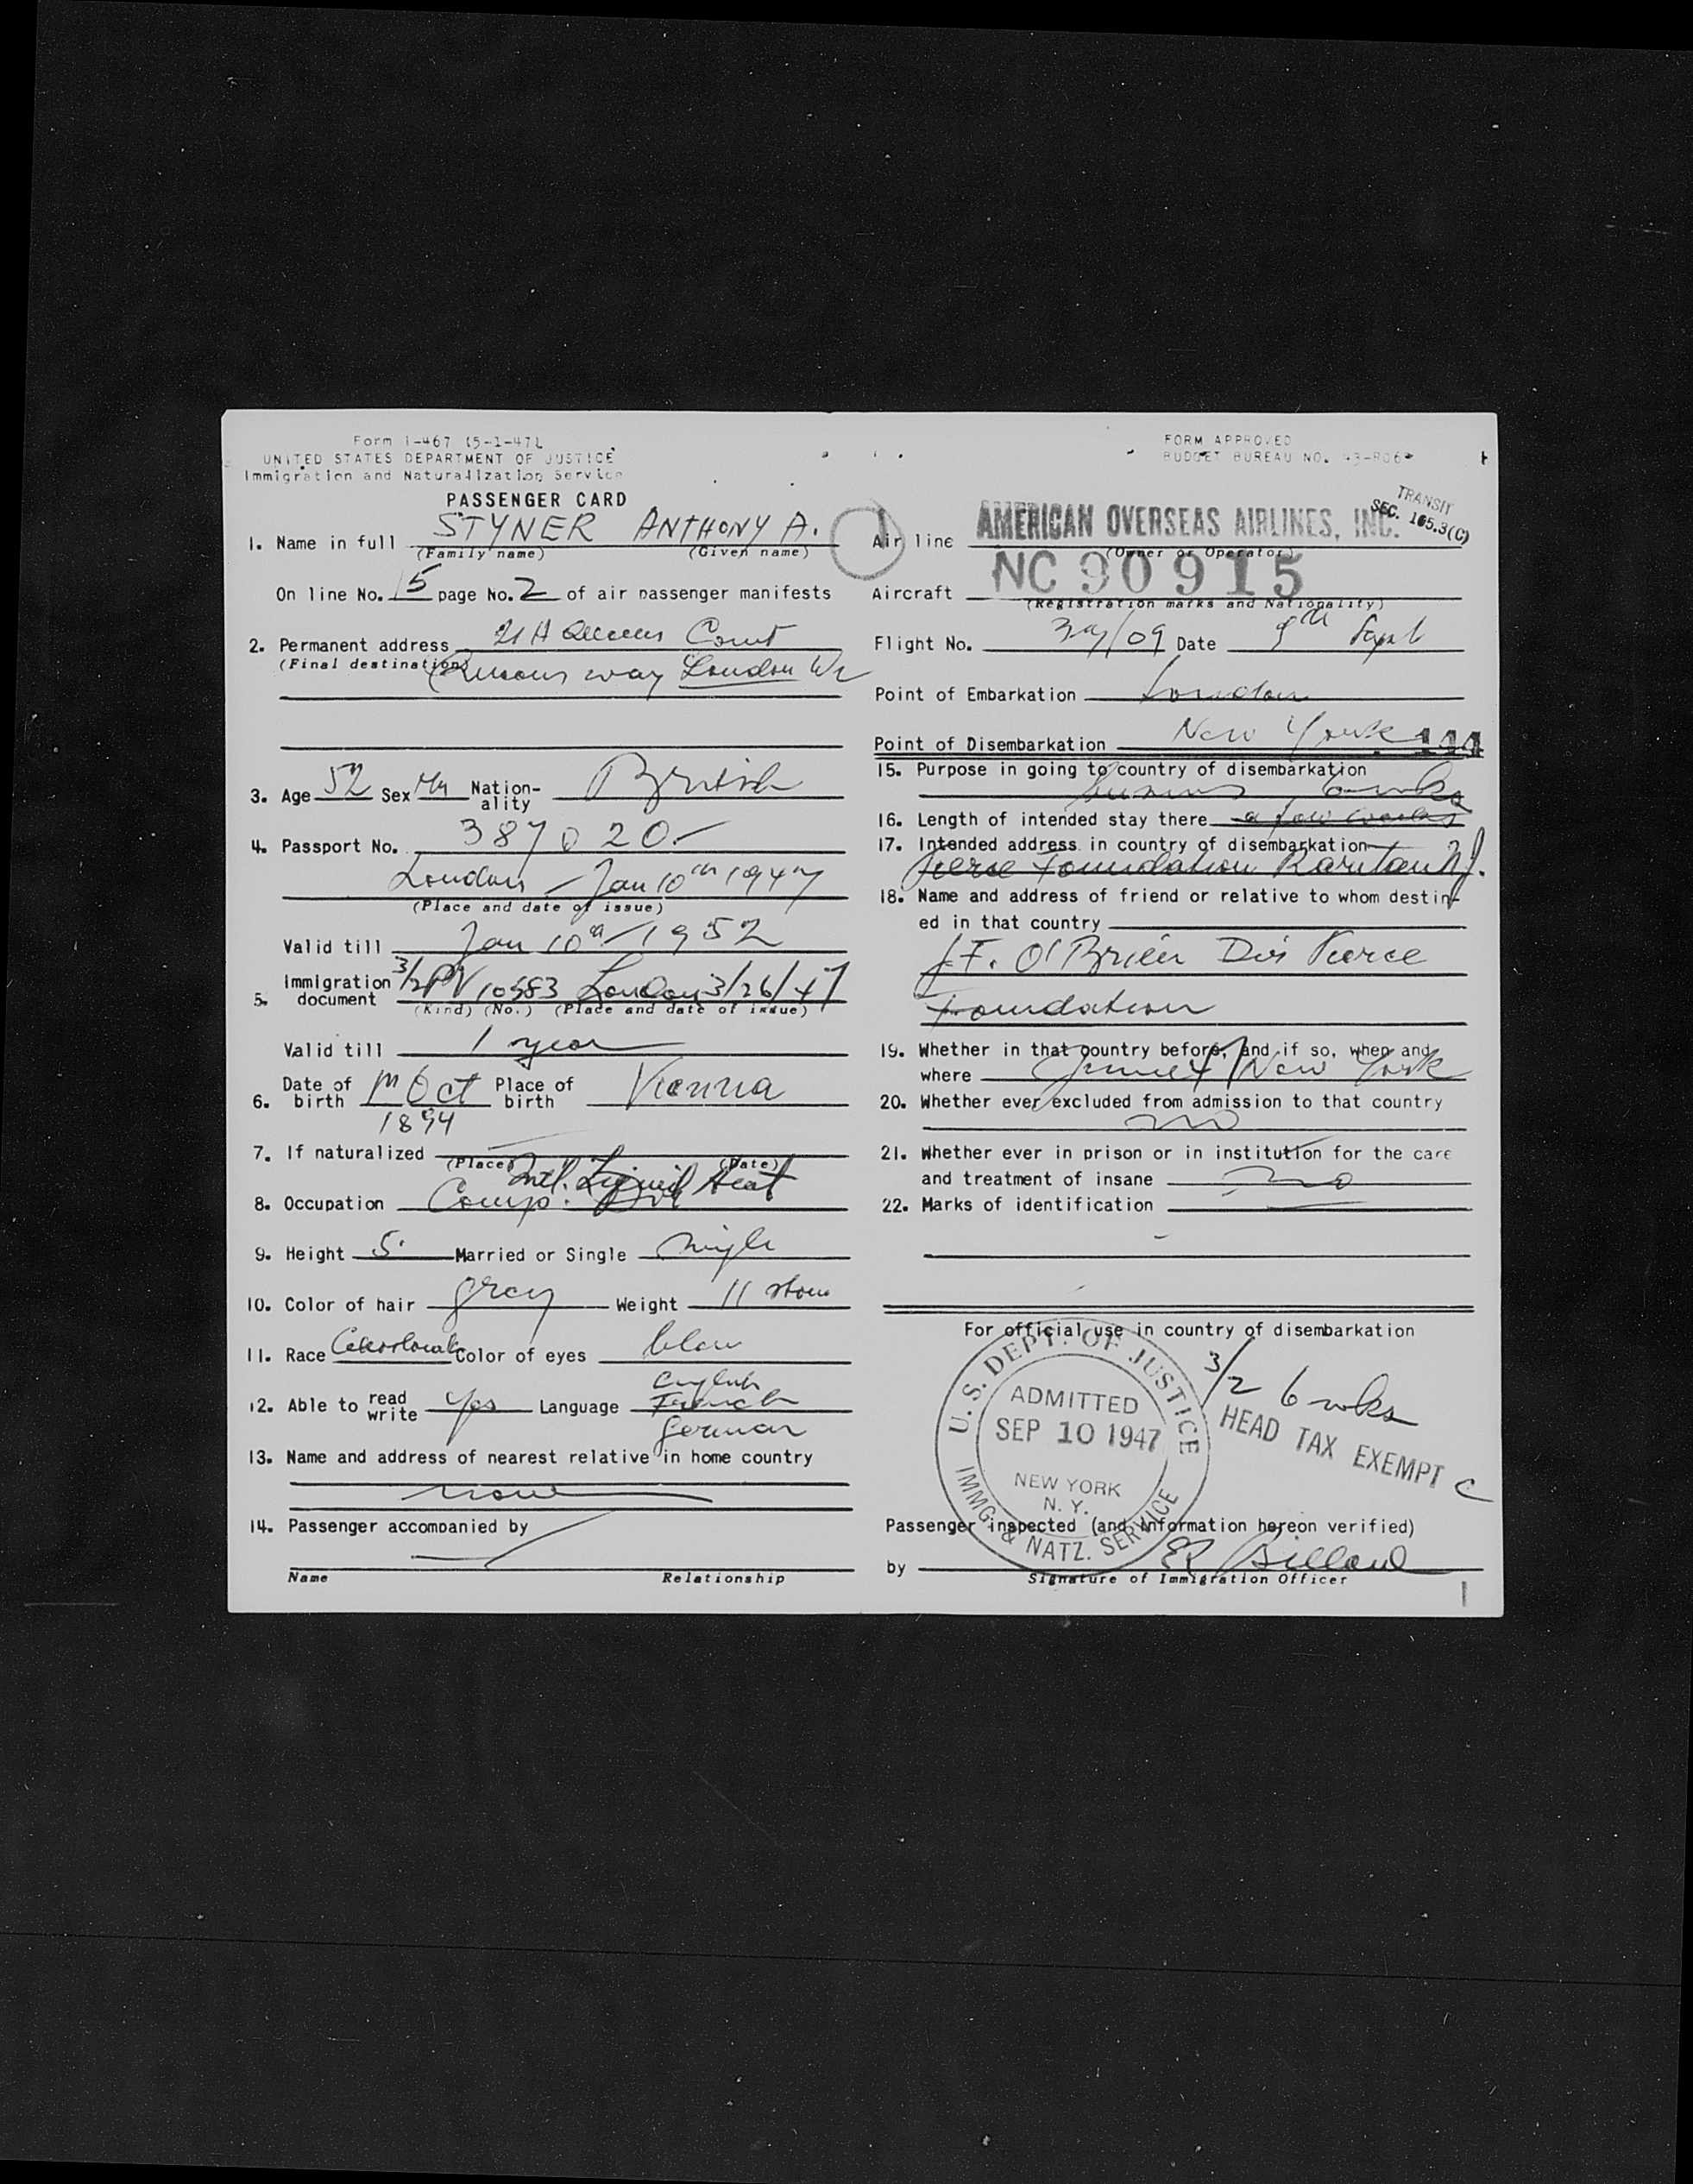 Form I-467 (5-1-47)
UNITED STATES DEPARTMENT OF JUSTICE
Immigration and Naturalization Service
PASSENGER CARD
1. Name in full STYNER ANTHONY A.
(Family name) (Given name)
On line No. 5 page No. 2 of air passenger manifests
2. Permanent address 21A Queens Court
(Final destination) Queens way London W2
3. Age 52 Sex Nation-ality British
4. Passport No. 387020
London - Jan 10th 1947
(Place and date of issue)
Valid till Jan 10th 1952
5. Immigration document 3/2 PV 10583 London 3/26/47
(Kind) (No.) (Place and date of issue)
Valid till 1 year
6. Date of birth 1st Oct 1894 Place of birth Vienna
7. If naturalized
(Place) (Date)
Intl. Liquid Heat
8. Occupation Comp. Dir
9. Height 5' Married or Single Single
10. Color of hair grey Weight 11 stone
11. Race Color of eyes blue
12. Able to read write Yes Language English
French
German
13. Name and address of nearest relative in home country
none
14. Passenger accompanied by
Name Relationship
FORM APPROVED
BUDGET BUREAU NO. 43-R06
TRANSIT
SEC. 165.3(C)
Air line AMERICAN OVERSEAS AIRLINES, INC.
(Owner or Operator)
Aircraft NC 90915
(Registration marks and Nationality)
Flight No. /09 Date 9th Sept
Point of Embarkation London
Point of Disembarkation New York 144
15. Purpose in going to country of disembarkation
business 6 wks
16. Length of intended stay there a few weeks
17. Intended address in country of disembarkation
Pierce Foundation Raritan N.J.
18. Name and address of friend or relative to whom destin-
ed in that country
J.F. O'Brien Dir Pierce
Foundation
19. Whether in that country before, and if so, when and
where June 47 New York
20. Whether ever excluded from admission to that country
no
21. Whether ever in prison or in institution for the care
and treatment of insane no
22. Marks of identification
For official use in country of disembarkation
U.S. DEPT. OF JUSTICE
ADMITTED
SEP 10 1947
NEW YORK
N. Y.
IMMG. & NATZ. SERVICE
3/2 6 wks
HEAD TAX EXEMPT C
Passenger inspected (and information hereon verified)
by
Signature of Immigration Officer